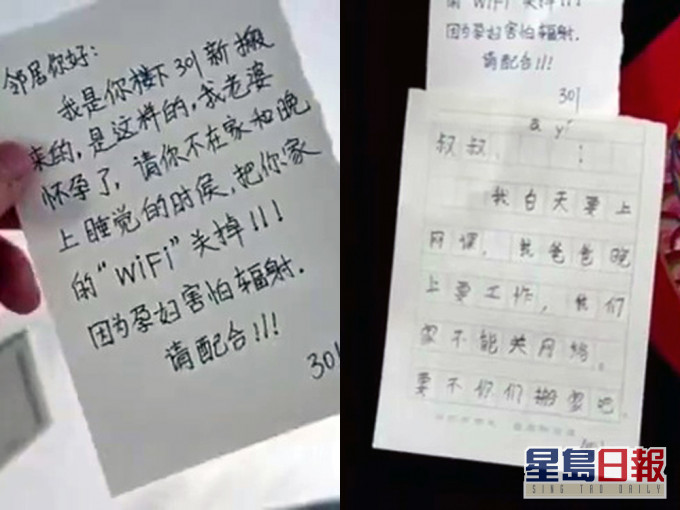 邻居你好：
我是你楼下301新搬
来的，是这样的，我老婆
怀孕了，请你不在家和晚
上睡觉的时候，把你家
的“WiFi”关掉!!!
因为孕妇害怕辐射.
请配合!!!
301
的“WiFi”关掉!!!
因为孕妇害怕辐射.
请配合!!!
301
a yí
叔叔、 ：
我白天要上
网课，我爸爸晚
上要工作，我们
家不能关网络。
要不你们搬家吧。
星島日報
SING TAO DAILY